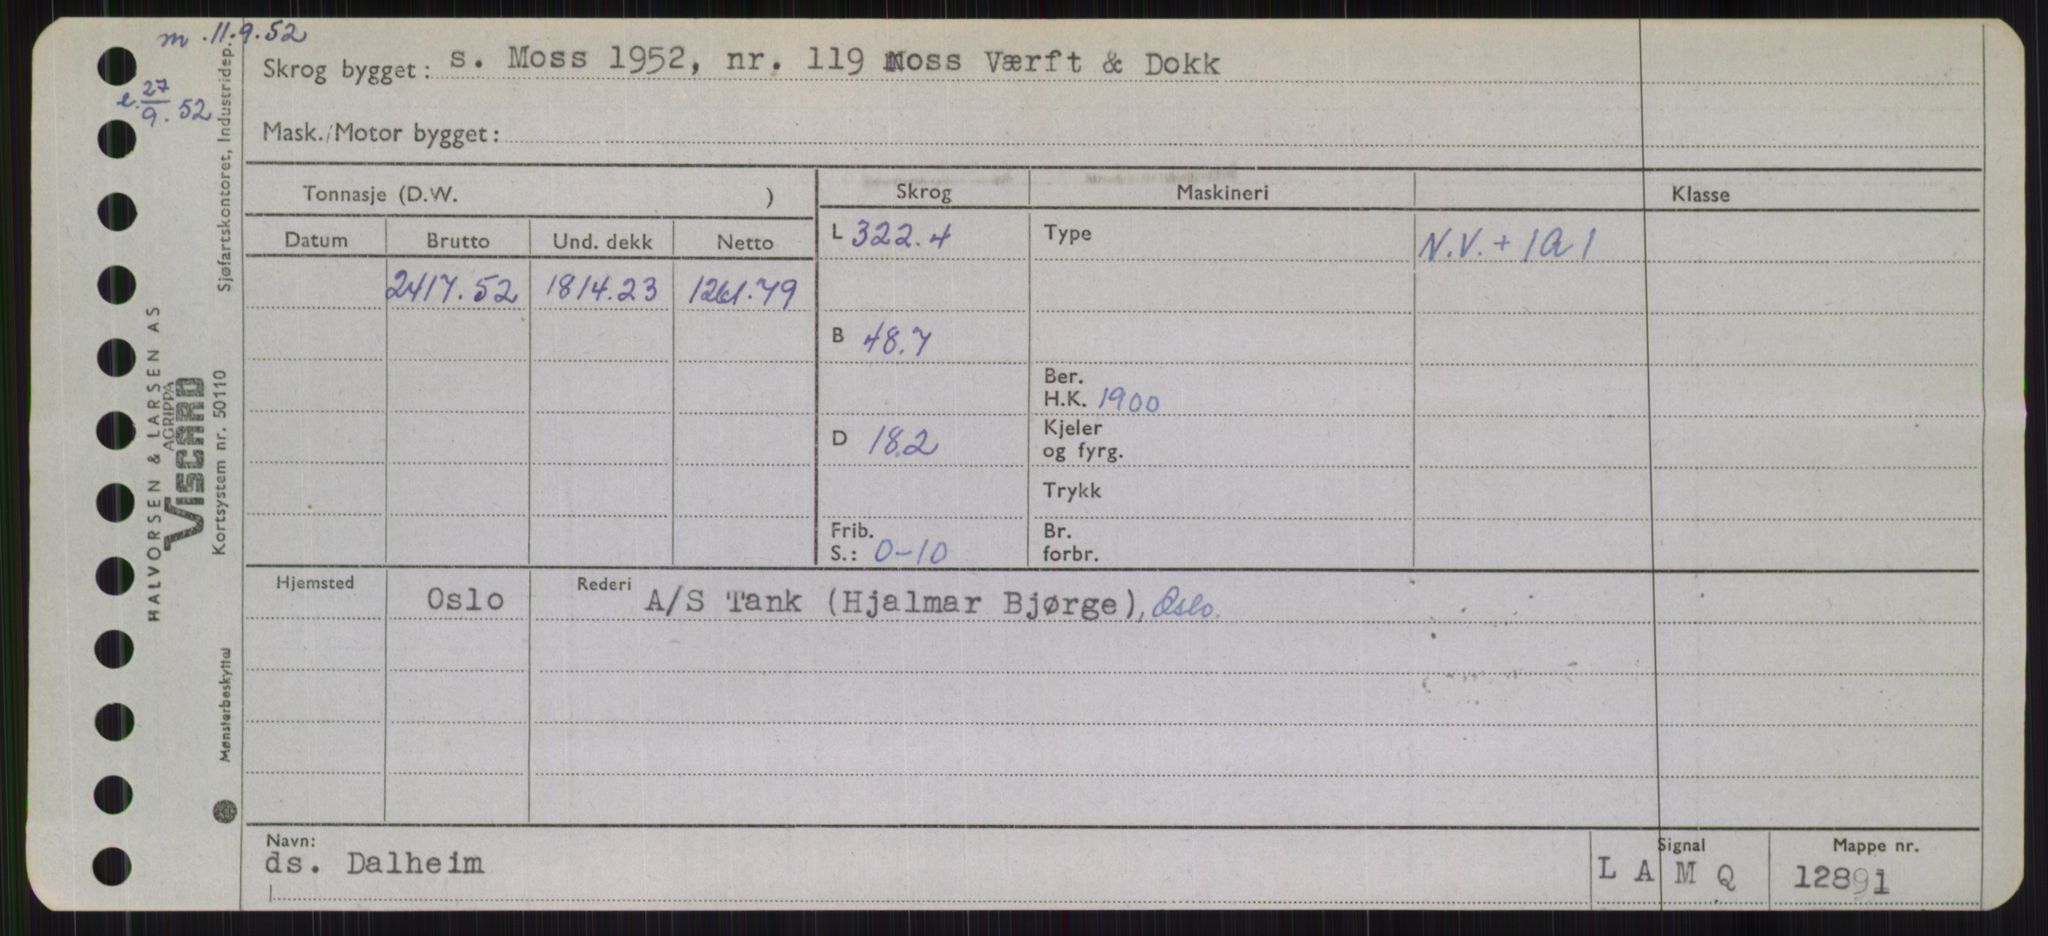 m. 11.9.52
e. 27/9. 52
Skrog bygget: s. Moss 1952, nr. 119 Moss Værft & Dokk
Mask./Motor bygget:
Tonnasje (D.W. )
Skrog Maskineri Klasse
Datum Brutto Und. dekk Netto
L 322.4 Type N.V. + 1A1
2417.52 1814.23 1261.79
B 48.7
Ber.
H.K. 1900
D 18.2 Kjeler
og fyrg.
Trykk
Frib. Br.
S.: 0-10 forbr.
Hjemsted Oslo Rederi A/S Tank (Hjalmar Bjørge), Oslo.
Navn: Signal Mappe nr.
ds. Dalheim L A M Q 12891
HALVORSEN & LARSEN AS
AGRIPPA
VISCARD
Kortsystem nr. 50110
Sjøfartskontoret, Industridep.
Mønsterbeskyttet